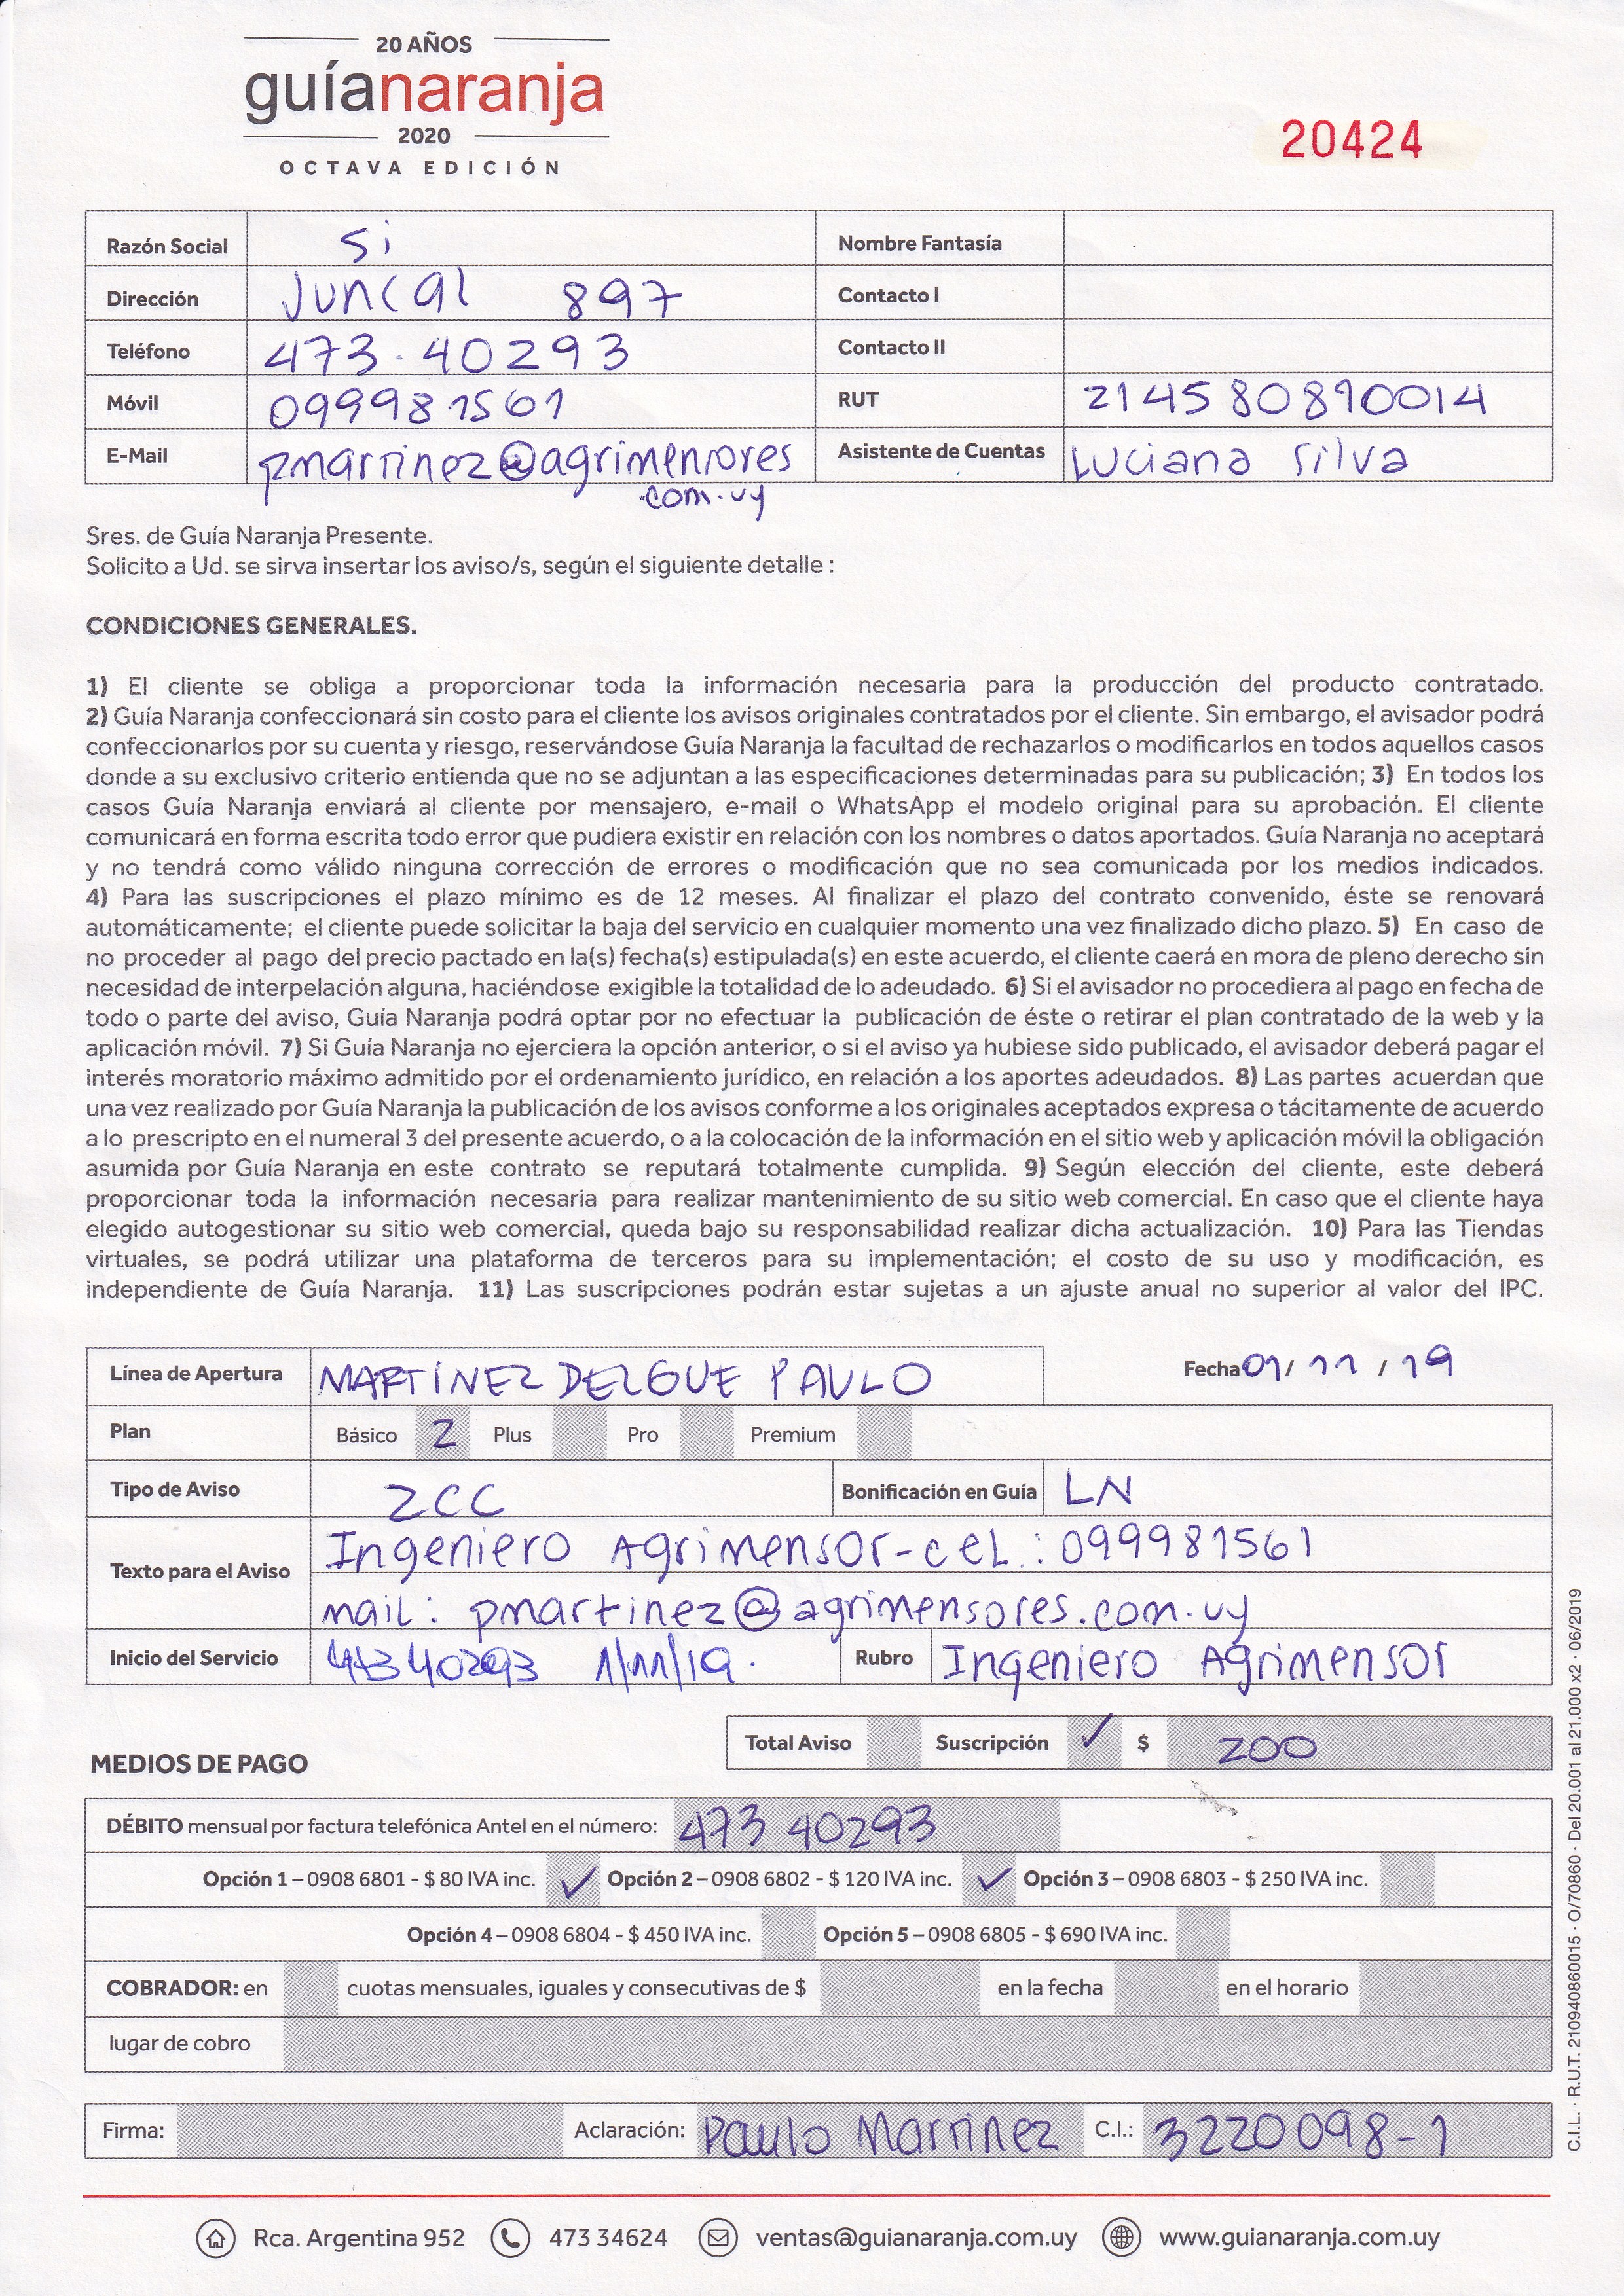 20 AÑOS
guíanaranja
2020
OCTAVA EDICIÓN
20424
Razón Social Si Nombre Fantasía
Dirección Juncal 897 Contacto I
Teléfono 473.40293 Contacto II
Móvil 099981561 RUT 214580890014
E-Mail pmartinez@agrimensores Asistente de Cuentas Luciana Silva
.com.uy
Sres. de Guía Naranja Presente.
Solicito a Ud. se sirva insertar los aviso/s, según el siguiente detalle :
CONDICIONES GENERALES.
1) El cliente se obliga a proporcionar toda la información necesaria para la producción del producto contratado.
2) Guía Naranja confeccionará sin costo para el cliente los avisos originales contratados por el cliente. Sin embargo, el avisador podrá
confeccionarlos por su cuenta y riesgo, reservándose Guía Naranja la facultad de rechazarlos o modificarlos en todos aquellos casos
donde a su exclusivo criterio entienda que no se adjuntan a las especificaciones determinadas para su publicación; 3) En todos los
casos Guía Naranja enviará al cliente por mensajero, e-mail o WhatsApp el modelo original para su aprobación. El cliente
comunicará en forma escrita todo error que pudiera existir en relación con los nombres o datos aportados. Guía Naranja no aceptará
y no tendrá como válido ninguna corrección de errores o modificación que no sea comunicada por los medios indicados.
4) Para las suscripciones el plazo mínimo es de 12 meses. Al finalizar el plazo del contrato convenido, éste se renovará
automáticamente; el cliente puede solicitar la baja del servicio en cualquier momento una vez finalizado dicho plazo. 5) En caso de
no proceder al pago del precio pactado en la(s) fecha(s) estipulada(s) en este acuerdo, el cliente caerá en mora de pleno derecho sin
necesidad de interpelación alguna, haciéndose exigible la totalidad de lo adeudado. 6) Si el avisador no procediera al pago en fecha de
todo o parte del aviso, Guía Naranja podrá optar por no efectuar la publicación de éste o retirar el plan contratado de la web y la
aplicación móvil. 7) Si Guía Naranja no ejerciera la opción anterior, o si el aviso ya hubiese sido publicado, el avisador deberá pagar el
interés moratorio máximo admitido por el ordenamiento jurídico, en relación a los aportes adeudados. 8) Las partes acuerdan que
una vez realizado por Guía Naranja la publicación de los avisos conforme a los originales aceptados expresa o tácitamente de acuerdo
a lo prescripto en el numeral 3 del presente acuerdo, o a la colocación de la información en el sitio web y aplicación móvil la obligación
asumida por Guía Naranja en este contrato se reputará totalmente cumplida. 9) Según elección del cliente, este deberá
proporcionar toda la información necesaria para realizar mantenimiento de su sitio web comercial. En caso que el cliente haya
elegido autogestionar su sitio web comercial, queda bajo su responsabilidad realizar dicha actualización. 10) Para las Tiendas
virtuales, se podrá utilizar una plataforma de terceros para su implementación; el costo de su uso y modificación, es
independiente de Guía Naranja. 11) Las suscripciones podrán estar sujetas a un ajuste anual no superior al valor del IPC.
Línea de Apertura MARTÍNEZ DELGUE PAULO Fecha 01/ 11 / 19
Plan Básico 2 Plus Pro Premium
Tipo de Aviso 2CC Bonificación en Guía LN
Texto para el Aviso Ingeniero Agrimensor-cel.: 099981561
mail: pmartinez@agrimensores.com.uy
Inicio del Servicio 47340293 1/11/19. Rubro Ingeniero Agrimensor
Total Aviso Suscripción ✓ $ 200
MEDIOS DE PAGO
DÉBITO mensual por factura telefónica Antel en el número: 473 40293
Opción 1 – 0908 6801 - $ 80 IVA inc. ✓ Opción 2 – 0908 6802 - $ 120 IVA inc. ✓ Opción 3 – 0908 6803 - $ 250 IVA inc.
Opción 4 – 0908 6804 - $ 450 IVA inc. Opción 5 – 0908 6805 - $ 690 IVA inc.
COBRADOR: en cuotas mensuales, iguales y consecutivas de $ en la fecha en el horario
lugar de cobro
Firma: Aclaración: Paulo Martinez C.I.: 3220098-1
Rca. Argentina 952 473 34624 ventas@guianaranja.com.uy www.guianaranja.com.uy
C.I.L. · R.U.T. 210940860015 · O/70860 · Del 20.001 al 21.000 x2 · 06/2019